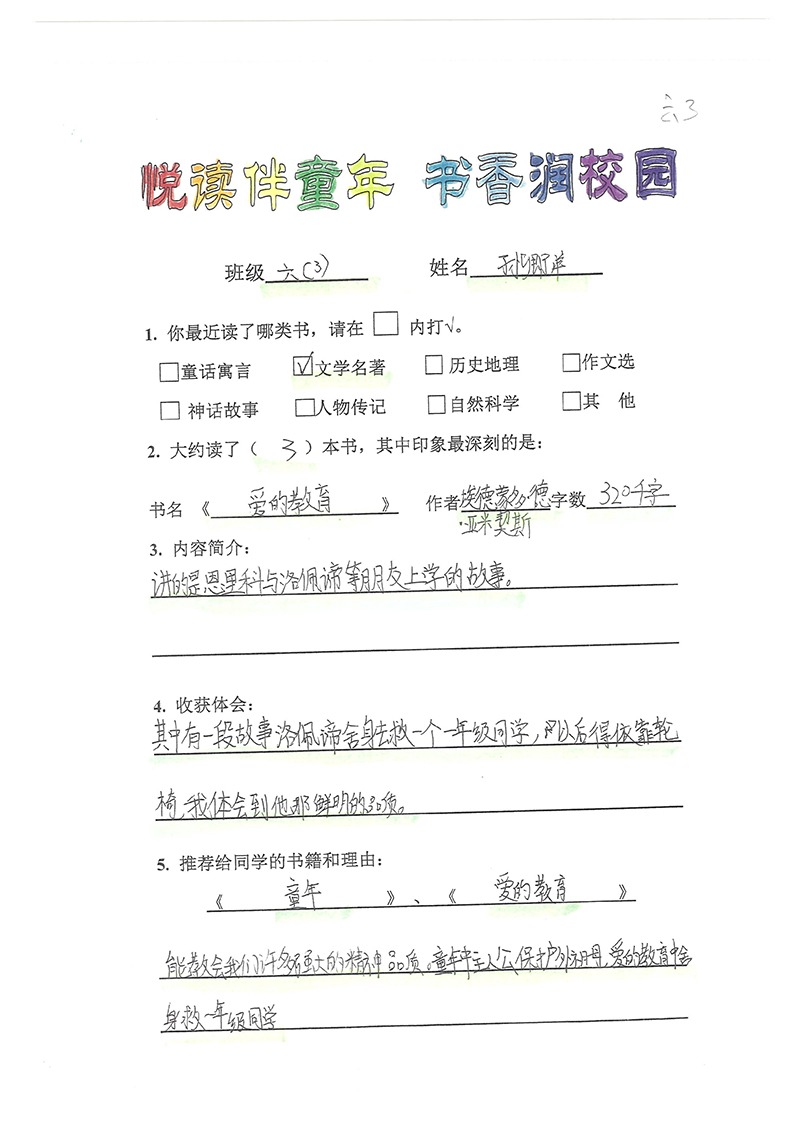 六3
悦读伴童年 书香润校园
班级 六(3) 姓名
1. 你最近读了哪类书，请在 □ 内打√。
□童话寓言 ☑文学名著 □ 历史地理 □作文选
□ 神话故事 □人物传记 □自然科学 □其 他
2. 大约读了（ 3 ）本书，其中印象最深刻的是：
书名 《 爱的教育 》 作者埃德蒙多·德 字数 320千字
·亚米契斯
3. 内容简介：
讲的是恩里科与洛佩谛等朋友上学的故事。
4. 收获体会：
其中有一段故事洛佩谛舍身去救一个一年级同学，以后得依靠轮
椅，我体会到他那鲜明的品质。
5. 推荐给同学的书籍和理由：
《 童年 》、《 爱的教育 》
能教会我们许多强大的精神品质。童年中主人公保护外祖母，爱的教育中舍
身救一年级同学